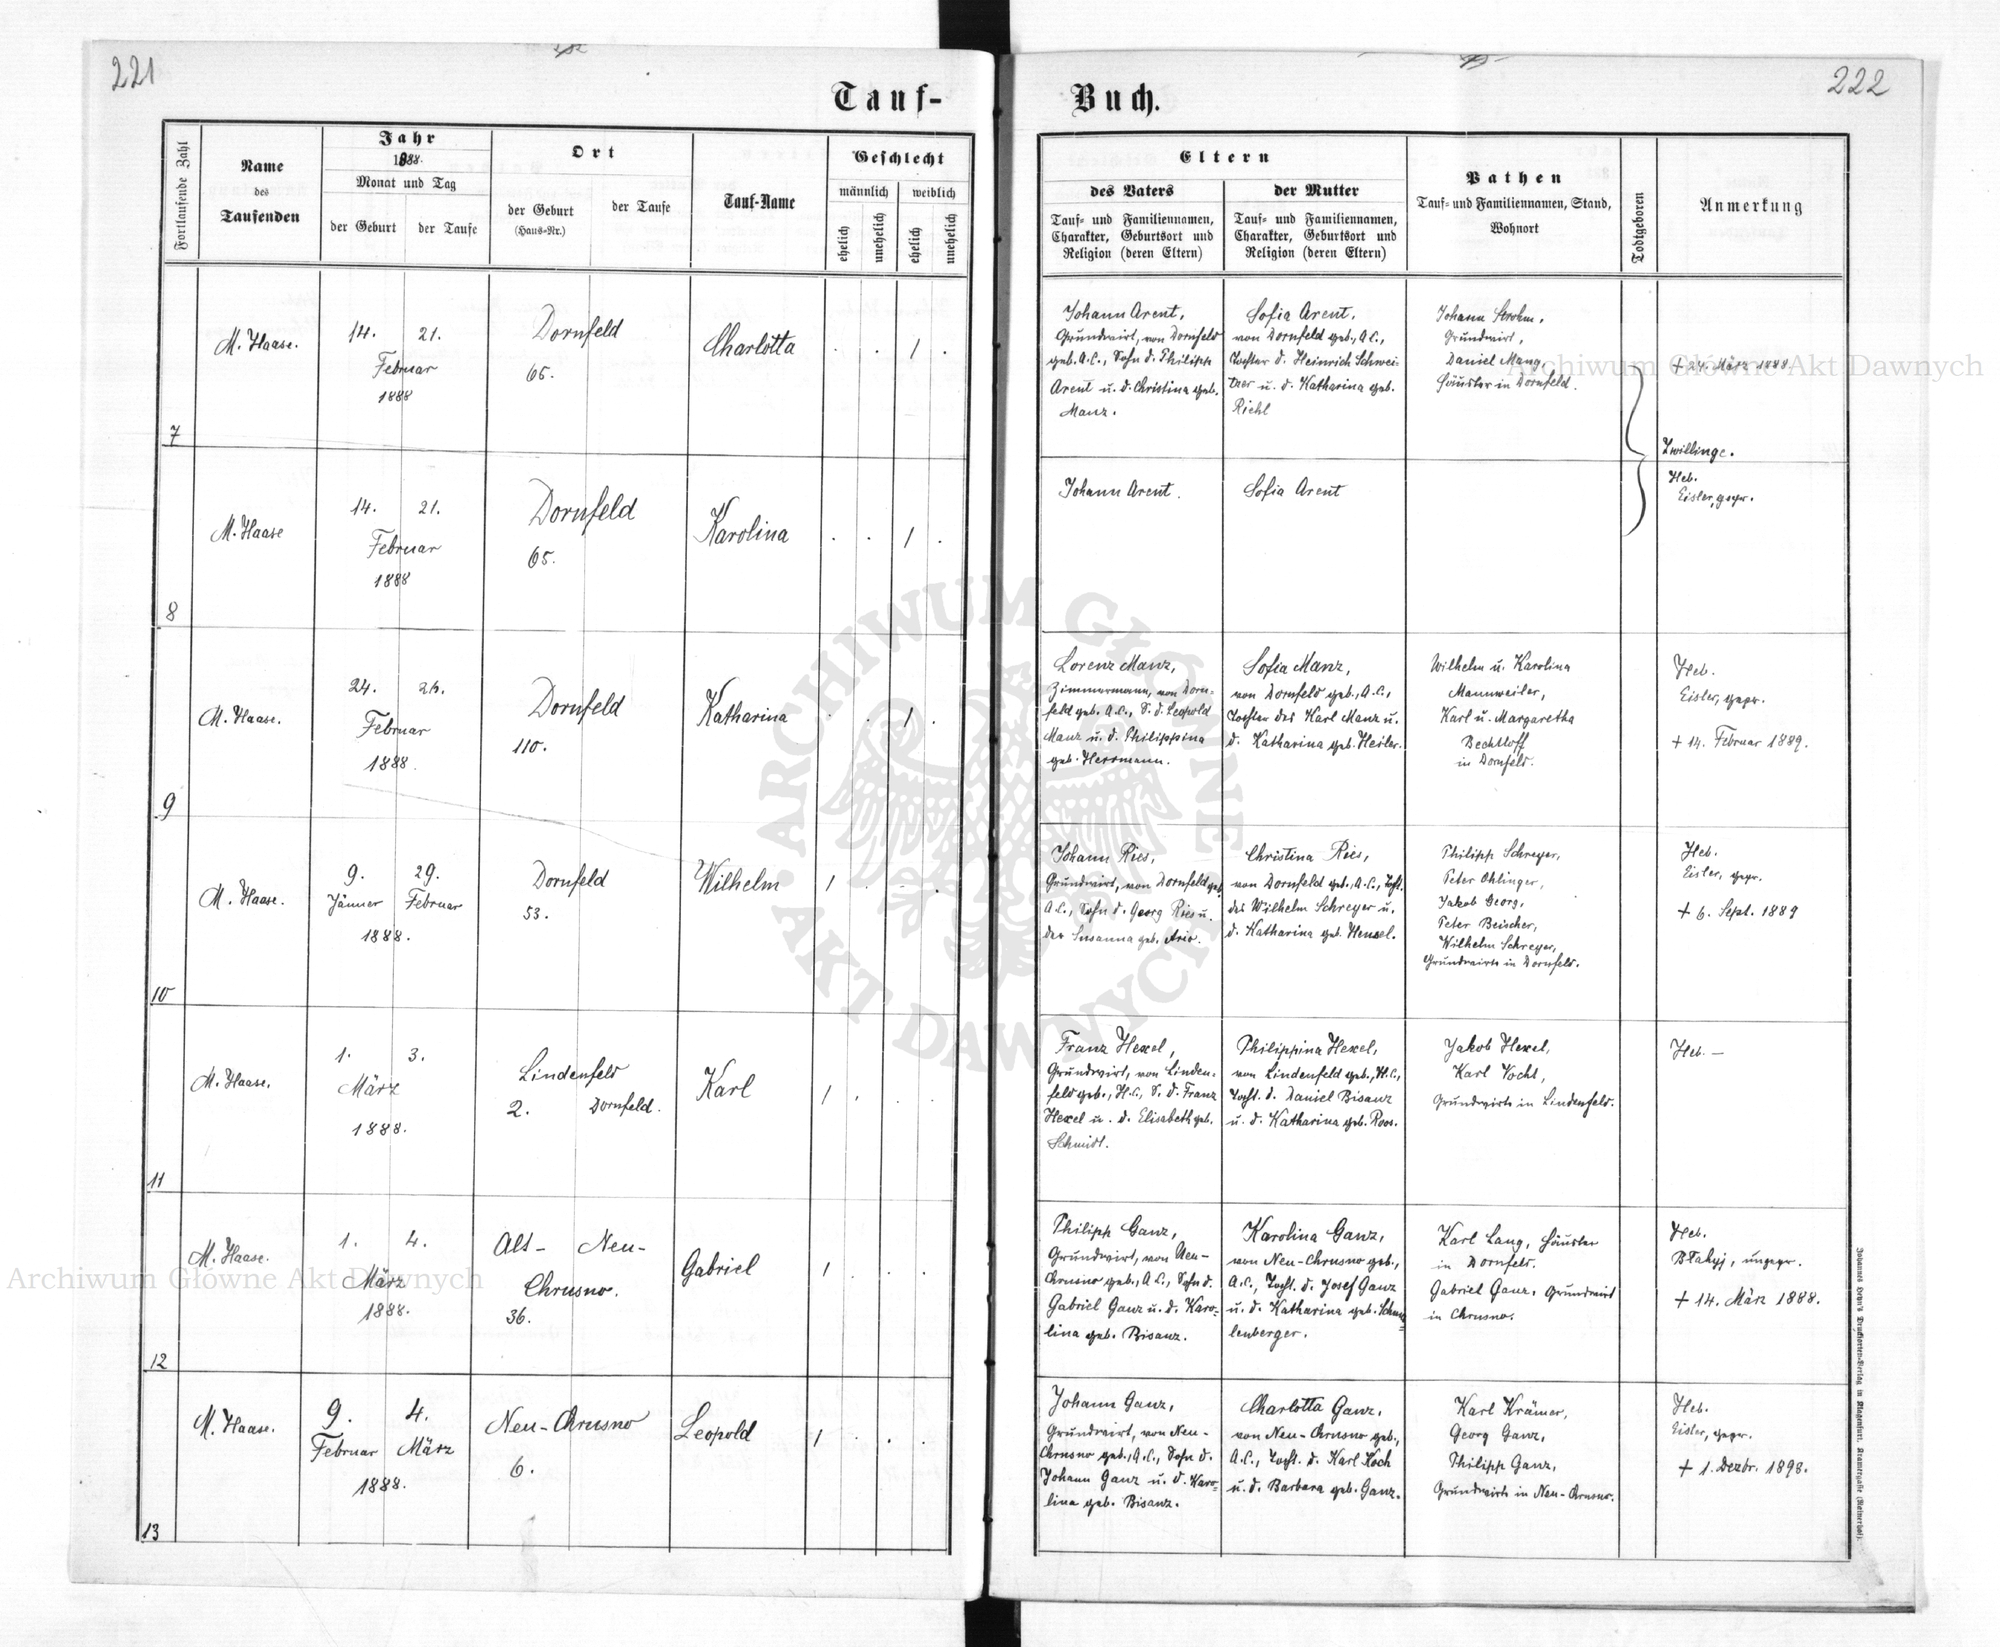 221
222
Tauf-
Buch.
Fortlaufende Zahl
Name
des
Taufenden
Jahr
1888.
Monat und Tag
der Geburt
der Taufe
Ort
der Geburt
(Haus-Nr.)
der Taufe
Tauf-Name
Geschlecht
männlich
weiblich
ehelich
unehelich
ehelich
unehelich
Eltern
des Vaters
Tauf- und Familiennamen,
Charakter, Geburtsort und
Religion (deren Eltern)
der Mutter
Tauf- und Familiennamen,
Charakter, Geburtsort und
Religion (deren Eltern)
Pathen
Tauf- und Familiennamen, Stand,
Wohnort
Todtgeboren
Anmerkung
7
M. Haase.
14. 21.
Februar
1888
Dornfeld
65.
Charlotta
1
Johann Arent,
Grundwirt, von Dornfeld
geb. A.C., Sohn d. Philipp
Arent u. d. Christina geb.
Manz.
Sofia Arent,
von Dornfeld geb., A.C.,
Tochter d. Heinrich Schwei-
tzer u. d. Katharina geb.
Riehl
Johann Strohm,
Grundwirt,
Daniel Mang
Häusler in Dornfeld.
+ 24. März 1888
Zwillinge.
8
M. Haase
14. 21.
Februar
1888
Dornfeld
65.
Karolina
1
Johann Arent.
Sofia Arent
Heb.
Eisler, gepr.
9
M. Haase.
24. 26.
Februar
1888.
Dornfeld
110.
Katharina
1
Lorenz Manz,
Zimmermann, von Dorn-
feld geb. A.C., S. d. Leopold
Manz u. d. Philippina
geb. Herrmann.
Sofia Manz,
von Dornfeld geb., A.C.,
Tochter des Karl Manz u.
d. Katharina geb. Heiler.
Wilhelm u. Karolina
Mannweiler,
Karl u. Margaretha
Bechtloff
in Dornfeld.
Heb.
Eisler, gepr.
+ 14. Februar 1889.
10
M. Haase.
9. 29.
Jänner Februar
1888.
Dornfeld
53.
Wilhelm
1
Johann Ries,
Grundwirt, von Dornfeld geb.
A.C., Sohn d. Georg Ries u.
der Susanna geb. Ario.
Christina Ries,
von Dornfeld geb., A.C., Tocht.
des Wilhelm Schreyer u.
d. Katharina geb. Hensel.
Philipp Schreyer,
Peter Ohlinger,
Jakob Georg,
Peter Beischer,
Wilhelm Schreyer,
Grundwirte in Dornfeld.
Heb.
Eisler, gepr.
+ 6. Sept. 1889
11
M. Haase.
1. 3.
März
1888.
Lindenfeld
2. Dornfeld.
Karl
1
Franz Hexel,
Grundwirt, von Linden-
feld geb., H.C., S. d. Franz
Hexel u. d. Elisabeth geb.
Schmidt.
Philippina Hexel,
von Lindenfeld geb., H.C.,
Tocht. d. Daniel Bisanz
u. d. Katharina geb. Roos.
Jakob Hexel,
Karl Vocht,
Grundwirte in Lindenfeld.
Heb. —
12
M. Haase.
1. 4.
März
1888.
Alt- Neu-
Chrusno.
36.
Gabriel
1
Philipp Ganz,
Grundwirt, von Neu-
Chrusno geb., A.C., Sohn d.
Gabriel Ganz u. d. Karo-
lina geb. Bisanz.
Karolina Ganz,
von Neu-Chrusno geb.,
A.C., Tocht. d. Josef Ganz
u. d. Katharina geb.
lenberger.
Karl Lang, Häusler
in Dornfeld.
Gabriel Ganz, Grundwirt
in Chrusno.
Heb.
ungepr.
+ 14. März 1888.
13
M. Haase.
9. 4.
Februar März
1888.
Neu-Chrusno
6.
Leopold
1
Johann Ganz,
Grundwirt, von Neu-
Chrusno geb., A.C., Sohn d.
Johann Ganz u. d. Karo-
lina geb. Bisanz.
Charlotta Ganz,
von Neu-Chrusno geb.,
A.C., Tocht. d. Karl Koch
u. d. Barbara geb. Ganz.
Karl Krämer,
Georg Ganz,
Philipp Ganz,
Grundwirte in Neu-Chrusno.
Heb.
Eisler, gepr.
+ 1. Dezbr. 1898.
Archiwum Główne Akt Dawnych
Archiwum Główne Akt Dawnych
ARCHIWUM GŁÓWNE AKT DAWNYCH